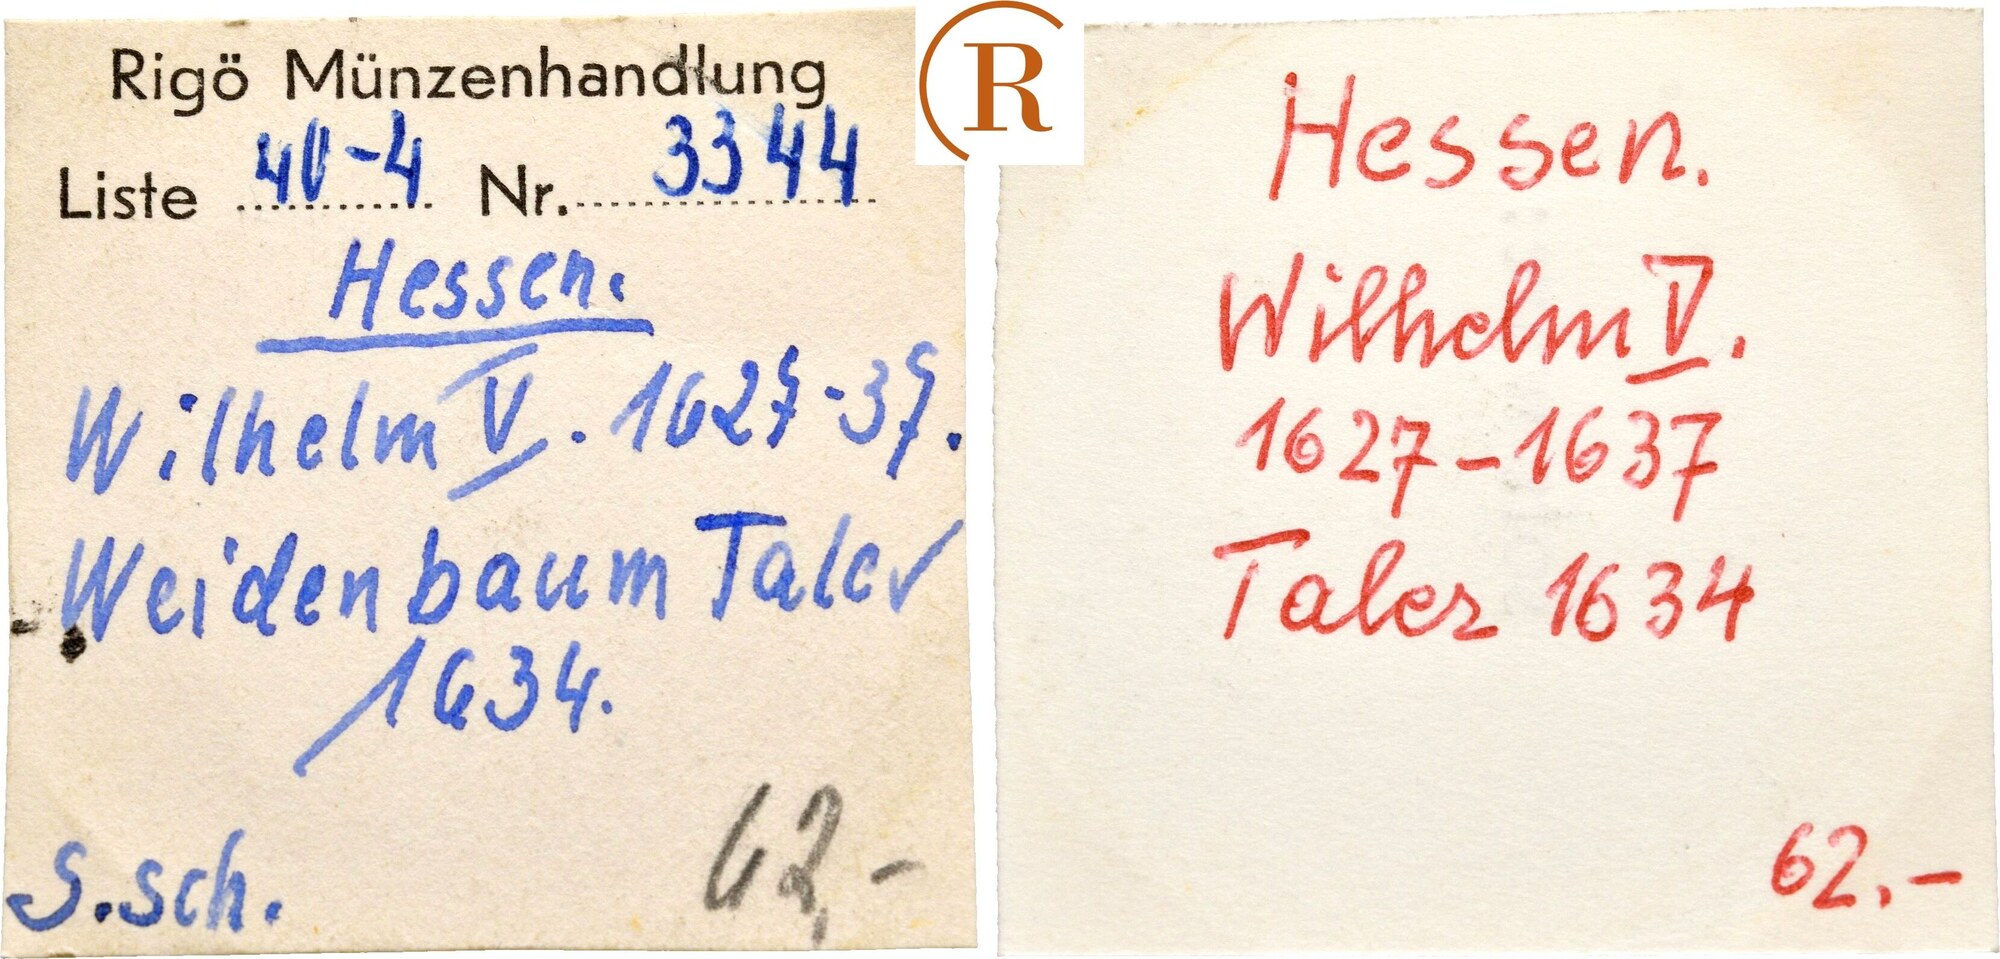 Rigö Münzenhandlung
Liste 40-4 Nr. 3344
Hessen.
Wilhelm V. 1627-37.
Weidenbaum Taler
1634.
S.sch.
62,-
R
Hessen.
Wilhelm V.
1627-1637
Taler 1634
62.-